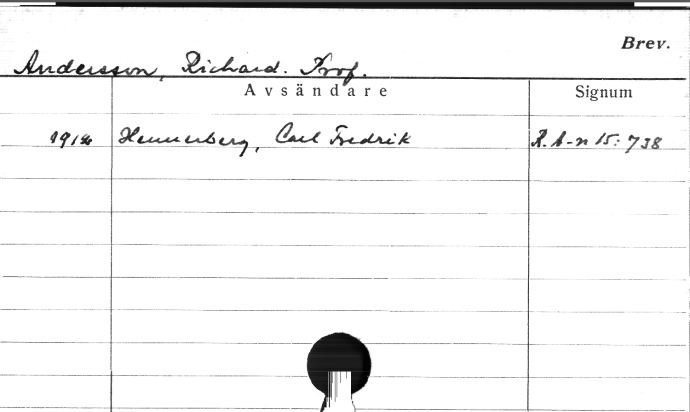 Brev.
Andersson, Richard. Prof.
Avsändare Signum
Hennerberg, Carl Fredrik R.A-n 15:738